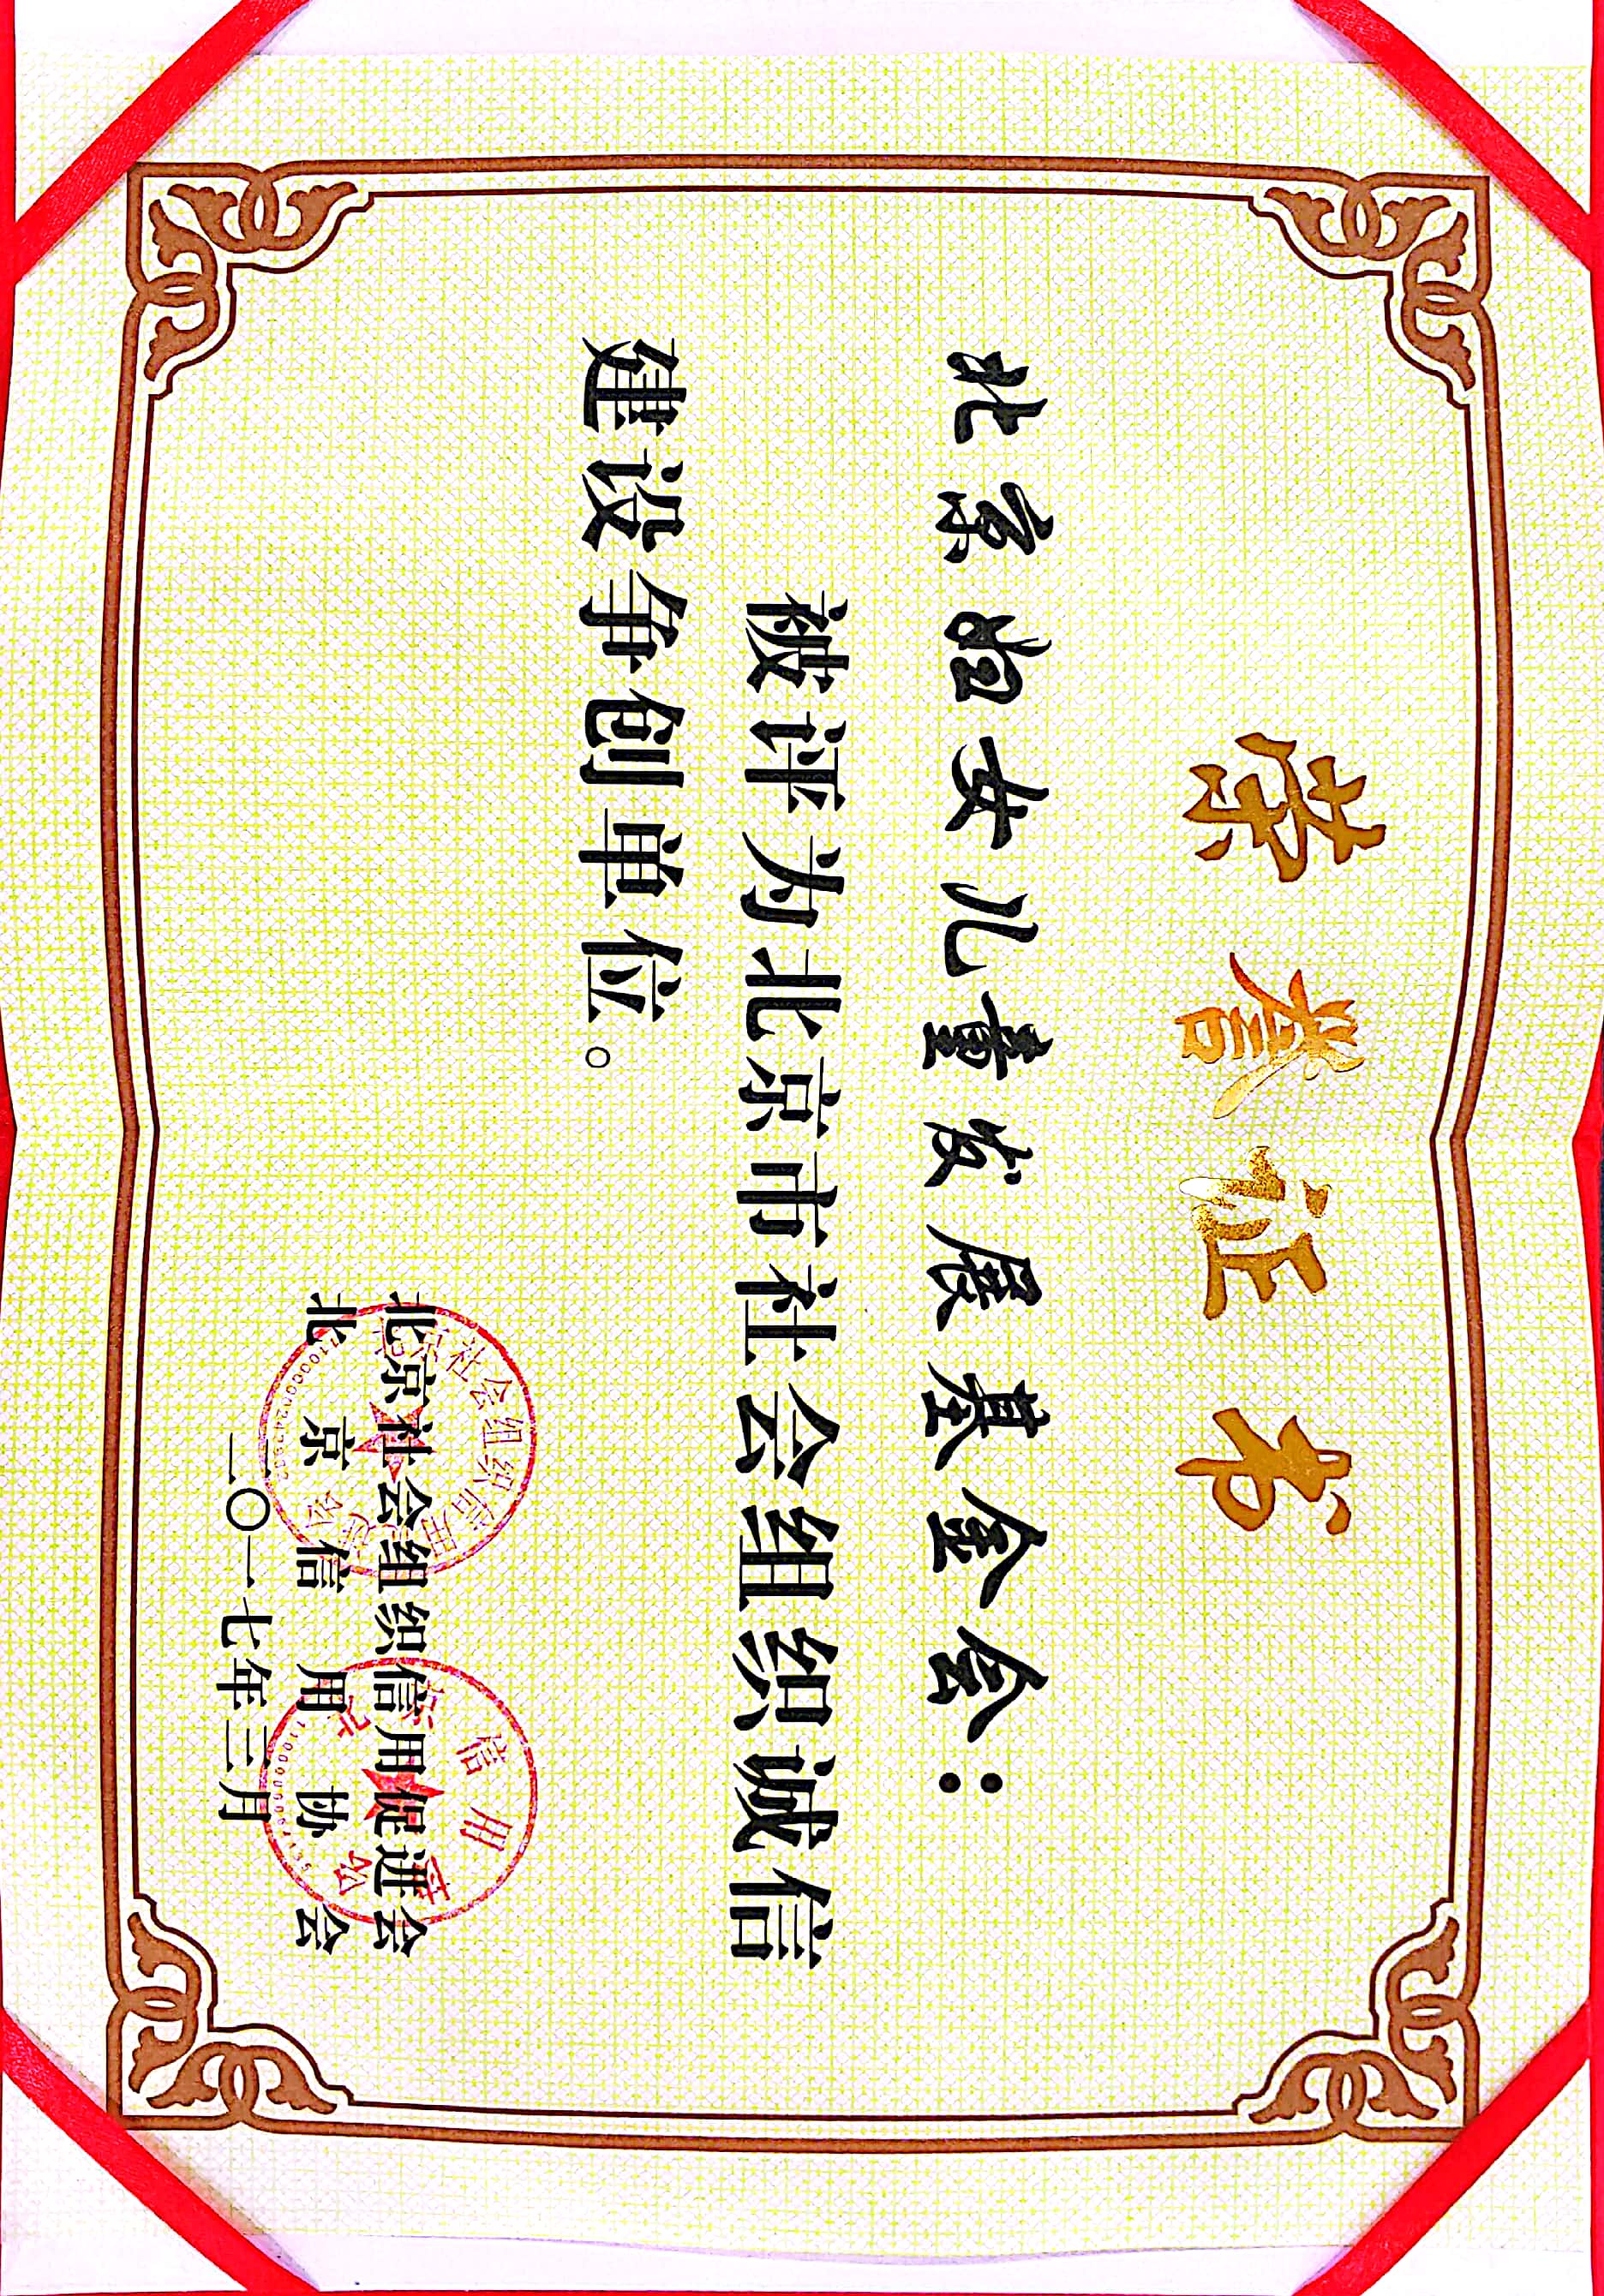 荣誉证书
北京妇女儿童发展基金会：
被评为北京市社会组织诚信
建设争创单位。
北京社会组织信用促进会
北京信用协会
二〇一七年三月